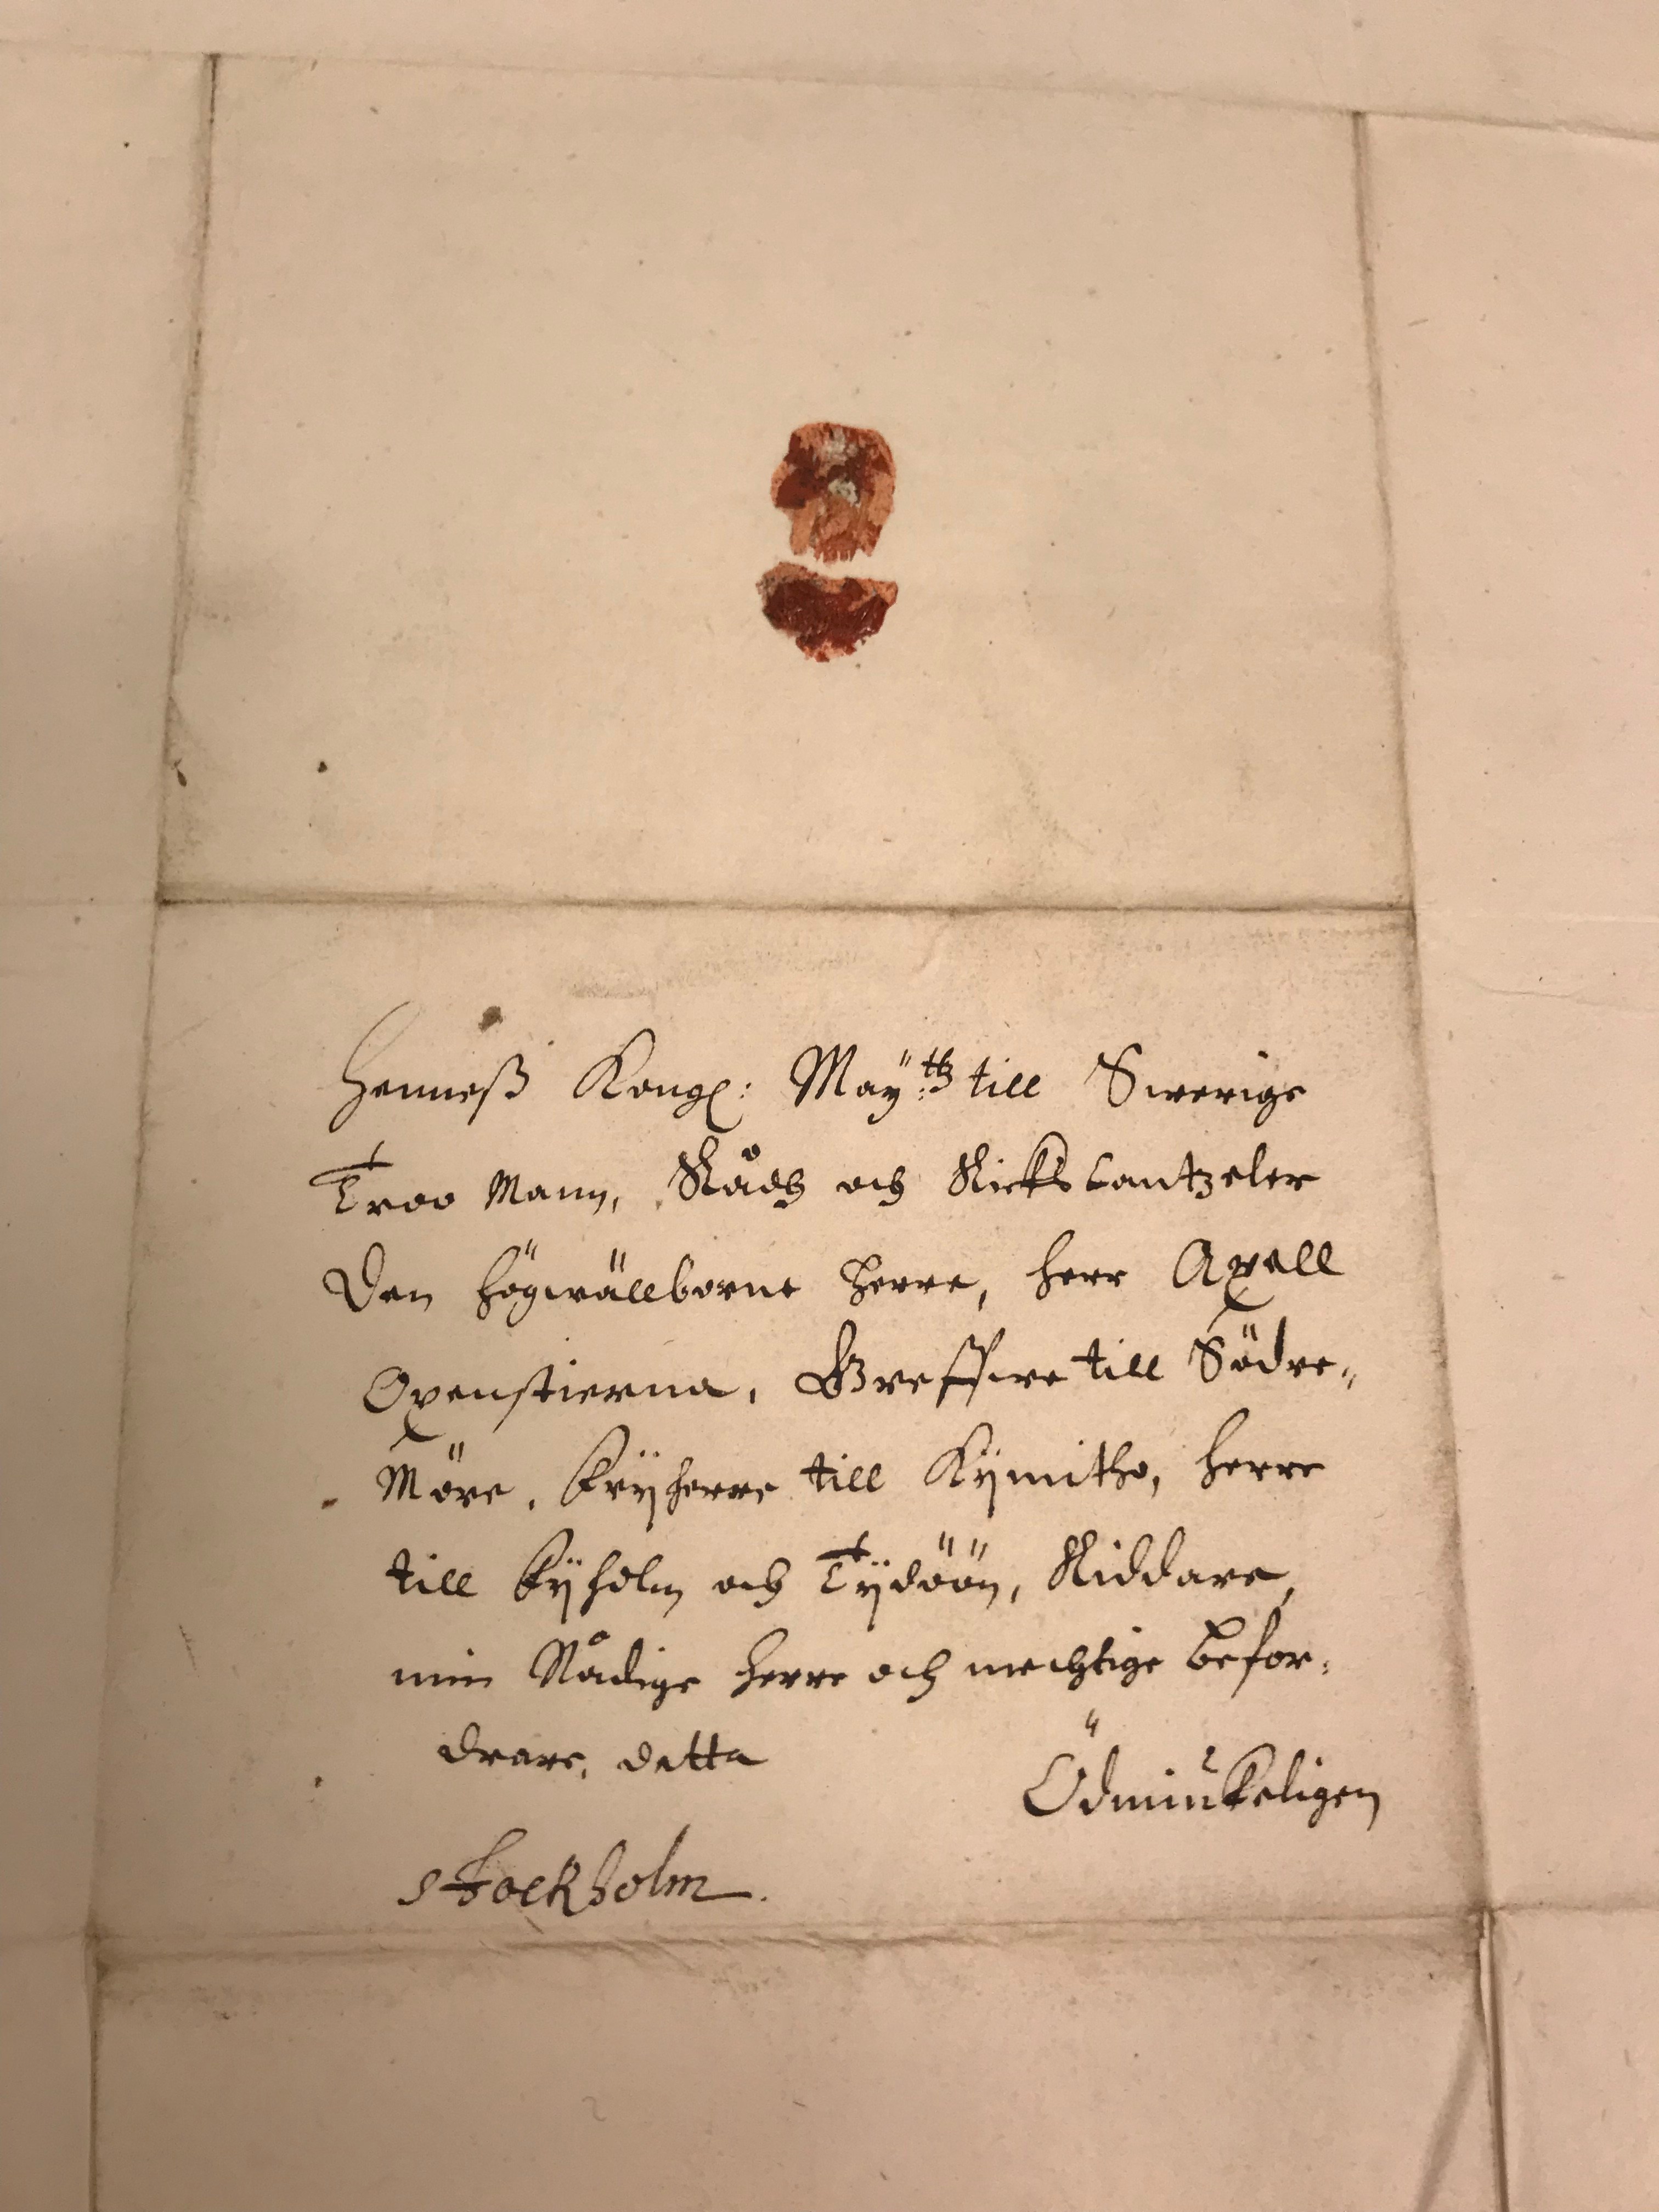 Henneß Kongl: May:ttz till Swerige
Troo Mann, Rådh och Rickz Cantzeler
Den högwällborne herre, herr Axell
Oxenstierna, Greffwe till Södre„
Möre, frÿherre till Kÿmitho, herre
till fÿholm och Tÿdöön, Riddare,
min Nådige herre och mechtige befor„
drare, detta
Ödmiukeligen
Stockholm.